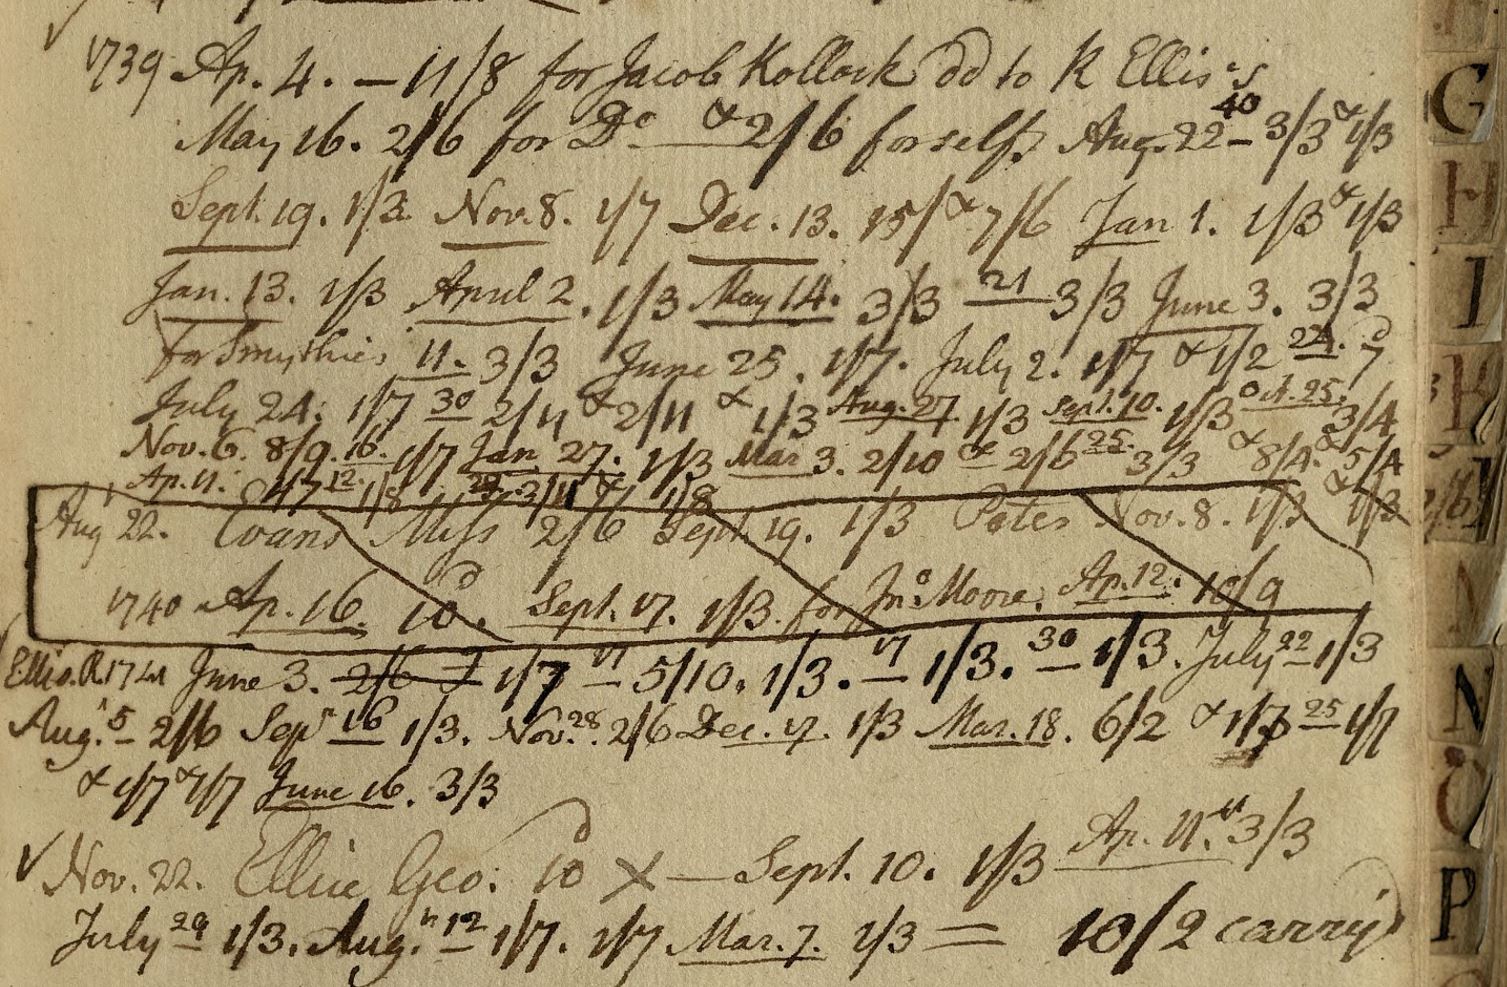 1739 Ap. 4. — 11/8 for Jacob Kollock dd to R Ellis's
May 16. 2/6 for Do. — & 2/6 for self. Aug. 22 – 40 3/3 & 1/3
Sept. 19. 1/3. Nov. 8. 1/7 Dec. 13. 15/ & 7/6 Jan 1. 1/3 & 1/3
Jan. 13. 1/3 April 2. 1/3 May 14. 3/3 21 3/3 June 3. 3/3
for Smythies 11. 3/3 June 25. 1/7. July 2. 1/7 & 1/2 22. 7d
July 24. 1/7 30 2/11 & 2/11 & 1/3 Aug. 27 1/3 Sept. 10. 1/3 Oct. 25. 3/4
Nov. 6. 8/9. 16. 1/7 Jan 27. 1/3 Mar 3. 2/10 & 2/6 25. 3/3 & 8/4. & 5/4
Ap. 11. 4/7 12. 1/8 2/11 & 1/8
Aug 22. Evans Miss 2/6 Sept. 19. 1/3 Peter Nov. 8. 1/3 & 1/3
1740 Ap. 16. 10d. Sept. 17. 1/3. for Jno. Moore. Ap. 12. 10/9
Ellis. R. 1741 June 3. 2/6 1/7 – 5/10. 1/3. 17 1/3. 30 – 1/3. July 22 – 1/3
Aug. 5 – 2/6 Sepr 16 1/3. Nov. 28. 2/6 Dec. 17. 1/3 Mar. 18. 6/2 & 1/7 25 1/7
& 1/7 & 1/7 June 16. 3/3
Nov. 22. Ellis Geo. 10d X — Sept. 10. 1/3 Ap. 11. 3/3
July 29 1/3. Aug. 12 1/7. 1/7 Mar. 7. 1/3 = 10/2 carry'd
G
H
I
K
L
M
N
O
P